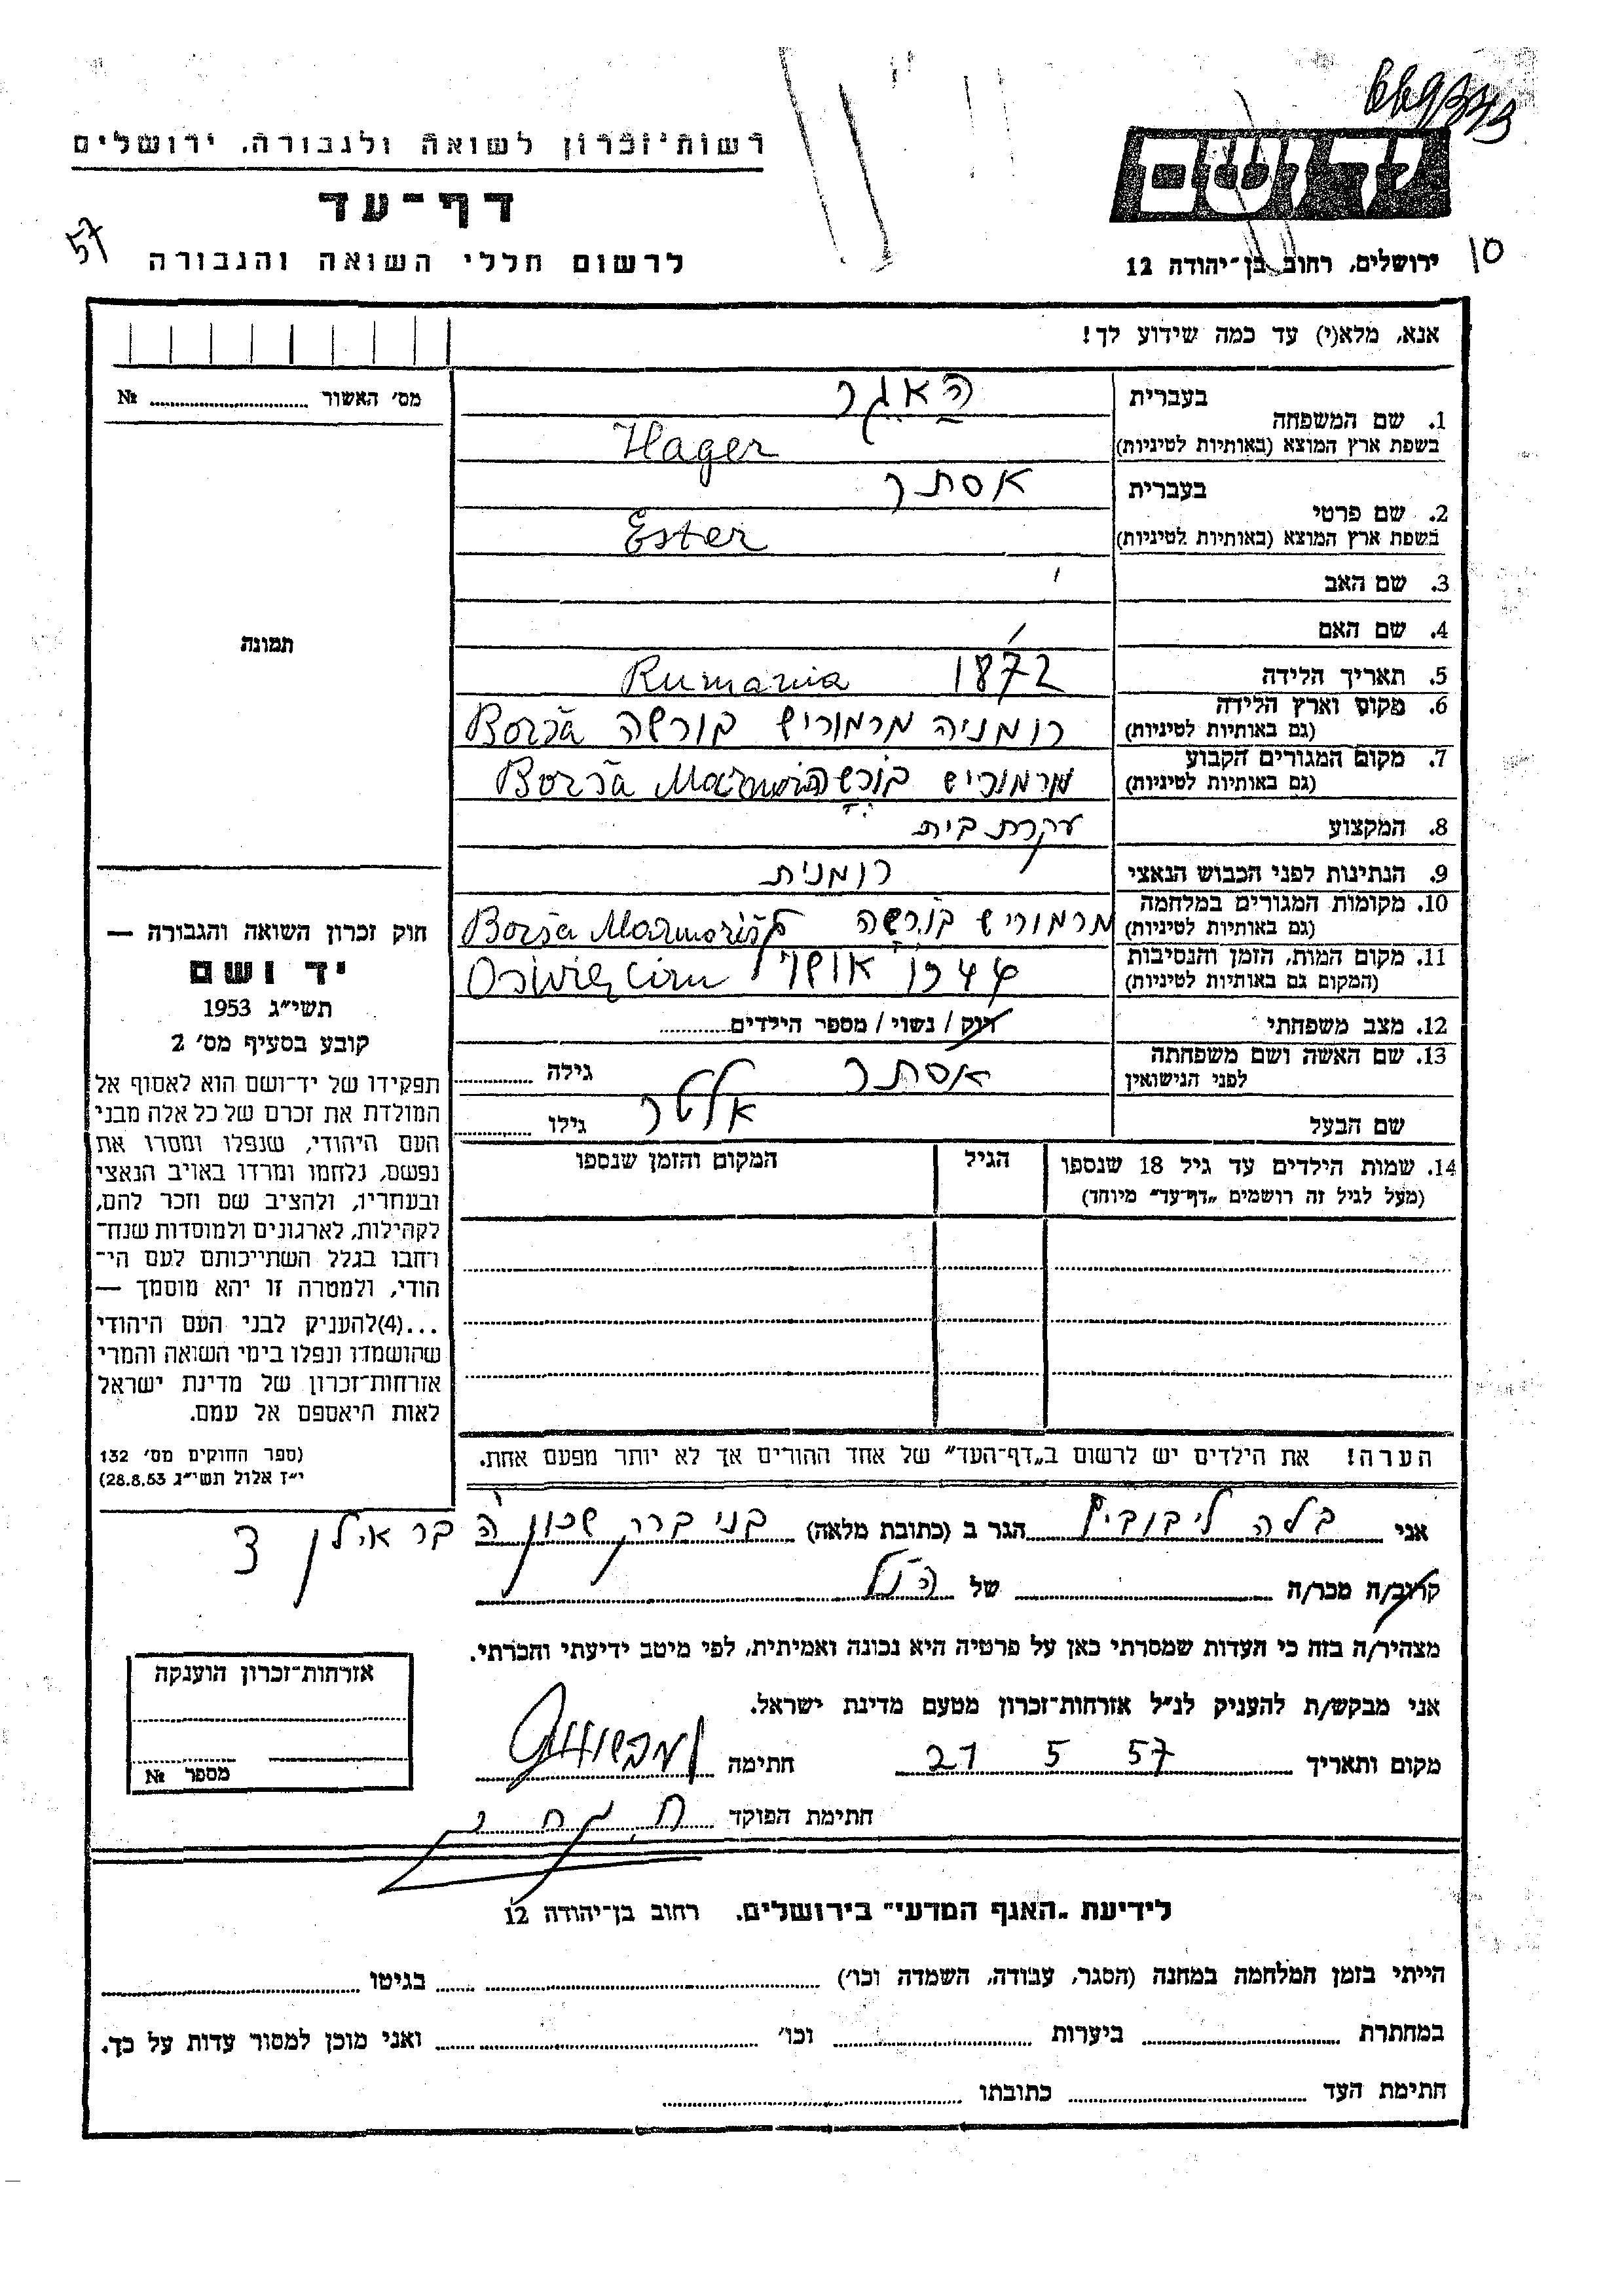 רשות־זכרון לשואה ולגבורה, ירושלים
דף־עד
לרשום חללי השואה והגבורה
57
יד ושם
ירושלים, רחוב בן־יהודה 12
10
אנא, מלא(י) עד כמה שידוע לך!
מס׳ האשור ........ №
תמונה
1. שם המשפחה
בעברית האגר
בשפת ארץ המוצא (באותיות לטיניות) Hager
2. שם פרטי
בעברית אסתר
בשפת ארץ המוצא (באותיות לטיניות) Ester
3. שם האב
4. שם האם
5. תאריך הלידה 1872 Rumania
6. מקום וארץ הלידה
(גם באותיות לטיניות) רומניה מרמוריש בורשה Borša
7. מקום המגורים הקבוע
(גם באותיות לטיניות) מרמוריש בורשה Borša
8. המקצוע עקרת בית
9. הנתינות לפני הכבוש הנאצי רומנית
10. מקומות המגורים במלחמה
(גם באותיות לטיניות) מרמוריש בורשה Borša
11. מקום המות, הזמן והנסיבות
(המקום גם באותיות לטיניות) 44 Oświęcim
12. מצב משפחתי רוק / נשוי / מספר הילדים........
13. שם האשה ושם משפחתה
לפני הנישואין אסתר גילה ........
שם הבעל אלטר גילו ........
14. שמות הילדים עד גיל 18 שנספו
(מעל לגיל זה רושמים „דף־עד״ מיוחד)
הגיל
המקום והזמן שנספו
הערה! את הילדים יש לרשום ב„דף־העד״ של אחד ההורים אך לא יותר מפעם אחת.
חוק זכרון השואה והגבורה —
יד ושם
תשי״ג 1953
קובע בסעיף מס׳ 2
תפקידו של יד־ושם הוא לאסוף אל
המולדת את זכרם של כל אלה מבני
העם היהודי, שנפלו ומסרו את
נפשם, נלחמו ומרדו באויב הנאצי
ובעוזריו, ולהציב שם וזכר להם,
לקהילות, לארגונים ולמוסדות שנח־
רחבו בגלל השתייכותם לעם הי־
הודי, ולמטרה זו יהא מוסמך —
...(4)להעניק לבני העם היהודי
שהושמדו ונפלו בימי השואה והמרי
אזרחות־זכרון של מדינת ישראל
לאות היאספם אל עמם.
(ספר החוקים מס׳ 132
י״ז אלול תשי״ג 28.8.53)
אני בלה ליבוביץ הגר ב (כתובת מלאה) בני ברק שכון ה בר אילן 3
קרוב/ה מכר/ה ........ של הנ״ל
מצהיר/ה בזה כי העדות שמסרתי כאן על פרטיה היא נכונה ואמיתית, לפי מיטב ידיעתי והכרתי.
אני מבקש/ת להעניק לנ״ל אזרחות־זכרון מטעם מדינת ישראל.
מקום ותאריך 21 5 57 חתימה
חתימת הפוקד
אזרחות־זכרון הוענקה
מספר №
לידיעת „האגף המדעי״ בירושלים, רחוב בן־יהודה 12
הייתי בזמן המלחמה במחנה (הסגר, עבודה, השמדה וכו׳) ........ בגיטו ........
במחתרת ........ ביערות ........ וכו׳ ........ ואני מוכן למסור עדות על כך.
חתימת העד ........ כתובתו ........